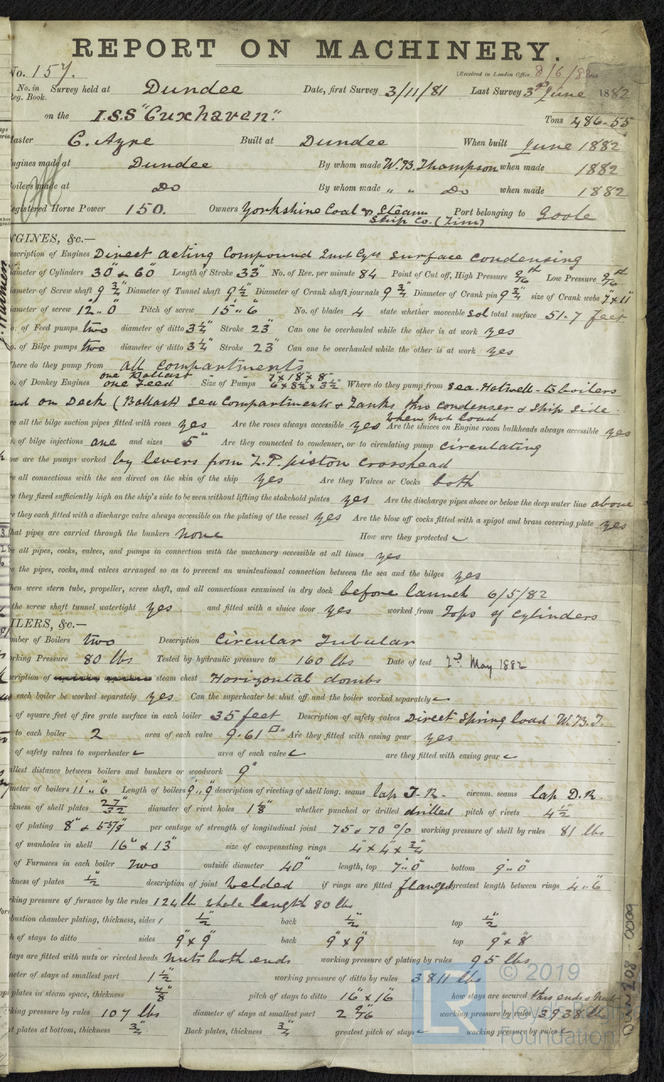 REPORT ON MACHINERY.
No. 157. (Received in London Office 8/6/82
No. in Survey held at Dundee Date, first Survey 3/11/81 Last Survey 3rd June 1882
Reg. Book.
on the I.S.S "Cuxhaven." Tons 486.55
Master C. Ayre Built at Dundee When built June 1882
Engines made at Dundee By whom made W.B. Thompson when made 1882
Boilers made at Do By whom made " " Do when made 1882
Registered Horse Power 150. Owners Yorkshire Coal & Steam Ship Co. (Lim) Port belonging to Goole
ENGINES, &c.—
Description of Engines Direct acting Compound Invt Cyls surface condensing
Diameter of Cylinders 30 & 60 Length of Stroke 33" No. of Rev. per minute 84 Point of Cut off, High Pressure 9/16th Low Pressure 9/16th
Diameter of Screw shaft 9 3/4" Diameter of Tunnel shaft 9 1/2" Diameter of Crank shaft journals 9 3/4" Diameter of Crank pin 9 3/4" size of Crank webs 7 x 11"
Diameter of screw 12"0 Pitch of screw 15"6 No. of blades 4 state whether moveable sol total surface 51.7 feet
No. of Feed pumps two diameter of ditto 3 1/4" Stroke 23" Can one be overhauled while the other is at work yes
No. of Bilge pumps two diameter of ditto 3 1/4" Stroke 23" Can one be overhauled while the other is at work yes
Where do they pump from all compartments
No. of Donkey Engines one Ballast one Feed Size of Pumps Where do they pump from Sea-Hotwell-to boilers
and on Deck (Ballast) Sea Compartments & Tanks thro condenser & Ship Side.
Are all the bilge suction pipes fitted with roses yes Are the roses always accessible yes Are the sluices on Engine room bulkheads always accessible when not load yes
No. of bilge injections one and sizes 5" Are they connected to condenser, or to circulating pump circulating
How are the pumps worked by levers from L.P. piston crosshead
Are all connections with the sea direct on the skin of the ship yes Are they Valves or Cocks both
Are they fixed sufficiently high on the ship's side to be seen without lifting the stokehold plates yes Are the discharge pipes above or below the deep water line above
Are they each fitted with a discharge valve always accessible on the plating of the vessel yes Are the blow off cocks fitted with a spigot and brass covering plate yes
What pipes are carried through the bunkers none How are they protected
Are all pipes, cocks, valves, and pumps in connection with the machinery accessible at all times yes
Are the pipes, cocks, and valves arranged so as to prevent an unintentional connection between the sea and the bilges yes
When were stern tube, propeller, screw shaft, and all connections examined in dry dock before launch 6/5/82
Is the screw shaft tunnel watertight yes and fitted with a sluice door yes worked from Tops of cylinders
BOILERS, &c.—
Number of Boilers two Description Circular Tubular
Working Pressure 80 lbs Tested by hydraulic pressure to 160 lbs Date of test 2d May 1882
Description of steam chest Horizontal dombs
Can each boiler be worked separately yes Can the superheater be shut off and the boiler worked separately
No. of square feet of fire grate surface in each boiler 35 feet Description of safety valves Direct Spring load W.B.T.
No. to each boiler 2 area of each valve 9.61 □" Are they fitted with easing gear yes
No. of safety valves to superheater area of each valve are they fitted with easing gear
Smallest distance between boilers and bunkers or woodwork 9"
Diameter of boilers 11"6 Length of boilers 9"9 description of riveting of shell long. seams lap T.R. circum. seams lap D.R.
Thickness of shell plates 27/32" diameter of rivet holes 1 1/8" whether punched or drilled drilled pitch of rivets 4 1/2"
Lap of plating 8" & 5 5/8" per centage of strength of longitudinal joint 75 & 70 % working pressure of shell by rules 81 lbs
Size of manholes in shell 16" x 13" size of compensating rings 4 x 4 x 3/4"
No. of Furnaces in each boiler Two outside diameter 40" length, top 7"0 bottom 9"0
Thickness of plates 1/2" description of joint welded if rings are fitted flanged greatest length between rings 4"6
Working pressure of furnace by the rules 124 lb whole length 80 lbs
Combustion chamber plating, thickness, sides 1/2" back 1/2" top 1/2"
Pitch of stays to ditto sides 9" x 9" back 9" x 9" top 9" x 8"
If stays are fitted with nuts or riveted heads nuts both ends working pressure of plating by rules 95 lbs
Diameter of stays at smallest part 1 1/2" working pressure of ditto by rules 3811 lbs
End plates in steam space, thickness pitch of stays to ditto 16" x 16" how stays are secured thro ends & nuts
Working pressure by rules 107 lbs diameter of stays at smallest part 2 9/16" working pressure by rules 3938 lbs
Front plates at bottom, thickness 3/4" Back plates, thickness 3/4" greatest pitch of stays working pressure by rules
© 2019
Foundation
DUN208-0009